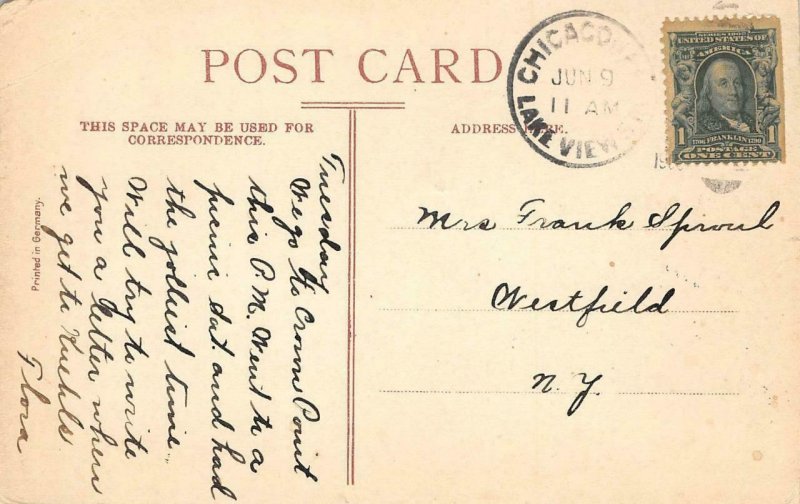 POST CARD
THIS SPACE MAY BE USED FOR
CORRESPONDENCE.
ADDRESS HERE.
CHICAGO
JUN 9
11 AM
LAKE VIEW
SERIES 1902
UNITED STATES OF
AMERICA
1 1
1706 FRANKLIN 1790
POSTAGE
ONE CENT
Tuesday
We go to Crown Point
this P.M. Went to a
picnic Sat. and had
the jolliest time.
Will try to write
you a letter when
we get to Kuehls.
Flora
Mrs Frank Sproul
Westfield
N. Y.
Printed in Germany.